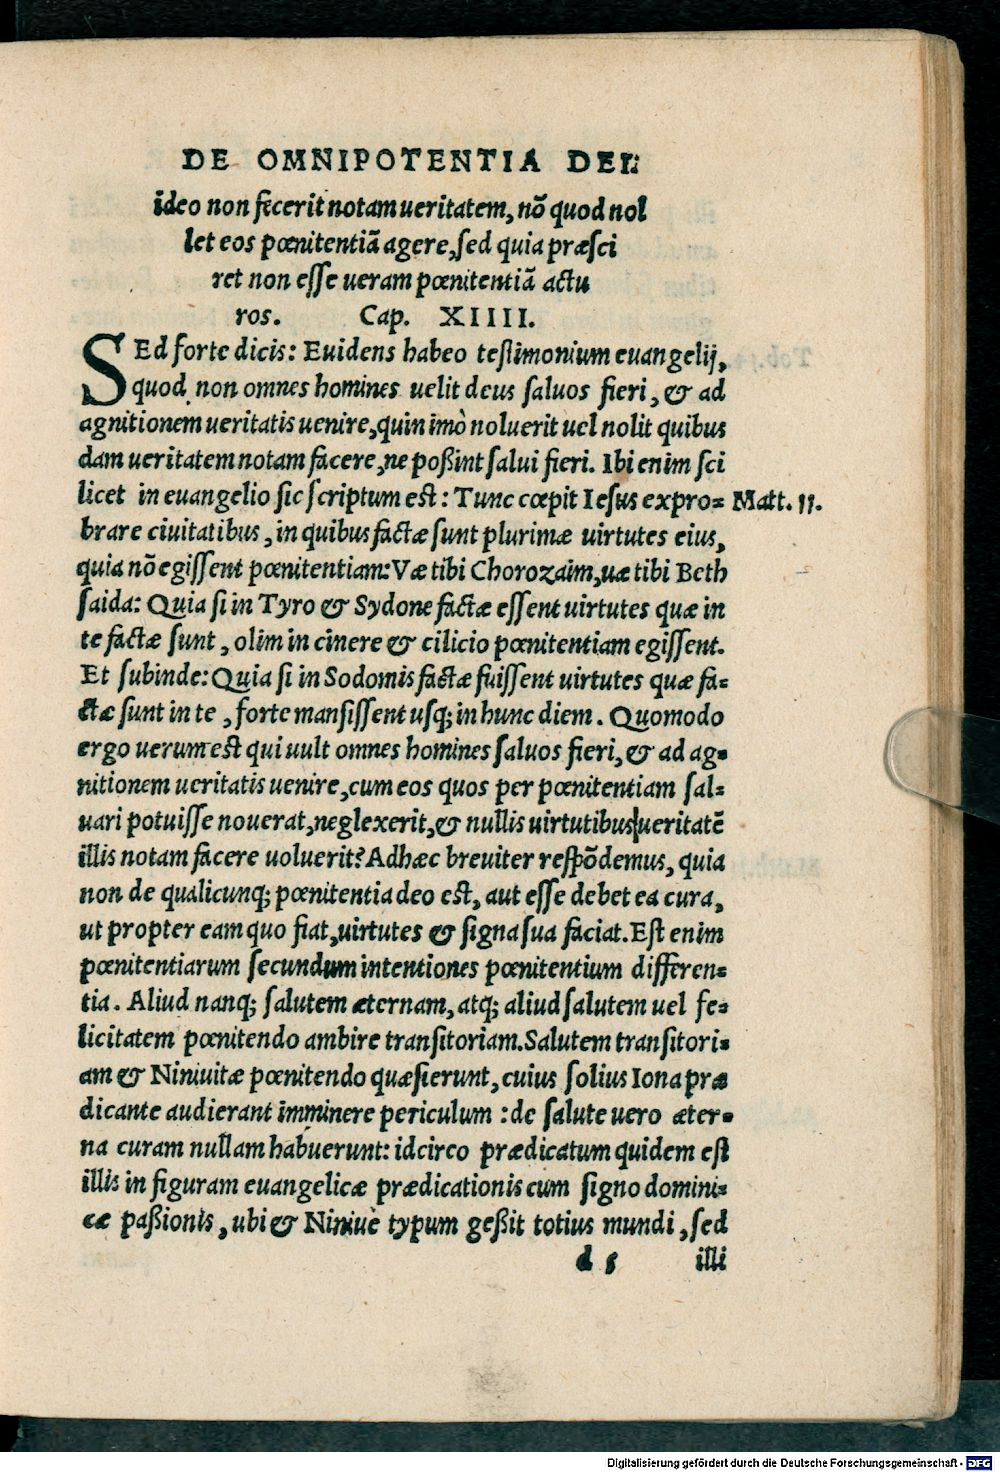 DE OMNIPOTENTIA DEI:
ideo non fecerit notam ueritatem, nõ quod nol
let eos pœnitentiã agere, sed quia præsci
ret non esse ueram pœnitentiã actu
ros. Cap. XIIII.
SEd forte dicis: Euidens habeo testimonium euangelij,
quod non omnes homines uelit deus saluos fieri, & ad
agnitionem ueritatis uenire, quin imò noluerit uel nolit quibus
dam ueritatem notam facere, ne poßint salui fieri. Ibi enim sci
licet in euangelio sic scriptum est: Tunc cœpit Iesus expro= Matt. 11.
brare ciuitatibus, in quibus factæ sunt plurimæ uirtutes eius,
quia nõ egissent pœnitentiam: Væ tibi Chorozaim, uæ tibi Beth
saida: Quia si in Tyro & Sydone factæ essent uirtutes quæ in
te factæ sunt, olim in cinere & cilicio pœnitentiam egissent.
Et subinde: Quia si in Sodomis factæ fuissent uirtutes quæ fa=
ctæ sunt in te, forte mansissent usq; in hunc diem. Quomodo
ergo uerum est qui uult omnes homines saluos fieri, & ad ag=
nitionem ueritatis uenire, cum eos quos per pœnitentiam sal=
uari potuisse nouerat, neglexerit, & nullis uirtutibus ueritatẽ
illis notam facere uoluerit? Adhæc breuiter respõdemus, quia
non de qualicunq; pœnitentia deo est, aut esse debet ea cura,
ut propter eam quo fiat, uirtutes & signa sua faciat. Est enim
pœnitentiarum secundum intentiones pœnitentium differen=
tia. Aliud nanq; salutem æternam, atq; aliud salutem uel fe=
licitatem pœnitendo ambire transitoriam. Salutem transitori=
am & Niniuitæ pœnitendo quæsierunt, cuius solius Iona præ
dicante audierant imminere periculum: de salute uero æter=
na curam nullam habuerunt: idcirco prædicatum quidem est
illis in figuram euangelicæ prædicationis cum signo domini=
cæ paßionis, ubi & Niniue typum geßit totius mundi, sed
d 5 illi
Digitalisierung gefördert durch die Deutsche Forschungsgemeinschaft - DFG